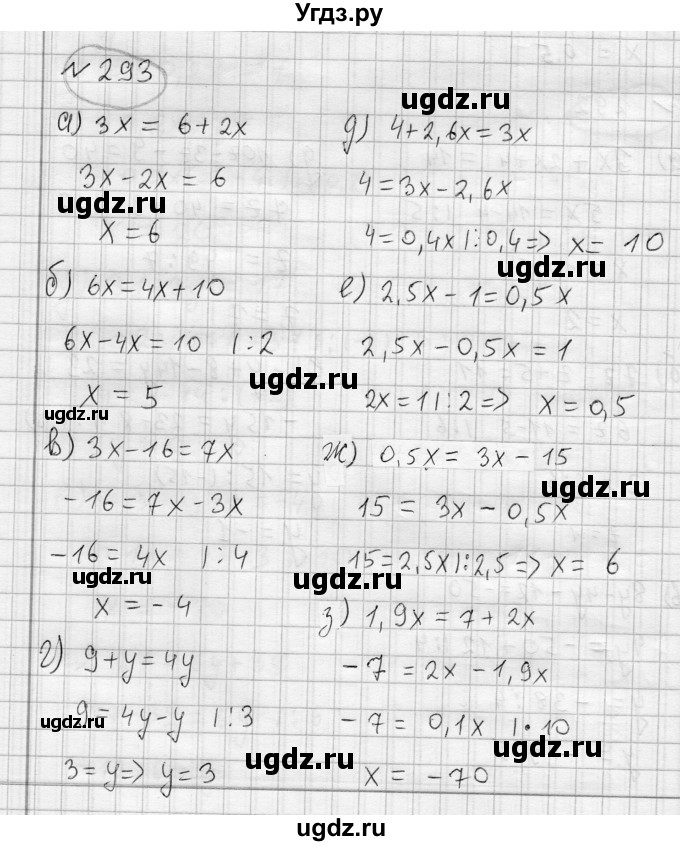 Угдз.ру
N 293
а) 3x = 6 + 2x
3x - 2x = 6
ugdz.ru
x = 6
б) 6x = 4x + 10
6x - 4x = 10 | : 2
ugdz.ru
x = 5
ugdz.ru
в) 3x - 16 = 7x
-16 = 7x - 3x
-16 = 4x | : 4
ugdz.ru
x = -4
г) 9 + y = 4y
ugdz.ru
9 = 4y - y | : 3
3 = y => y = 3
ugdz.ru
ugdz.ru
д) 4 + 2,6x = 3x
4 = 3x - 2,6x
4 = 0,4x | : 0,4 => x = 10
ugdz.ru
е) 2,5x - 1 = 0,5x
2,5x - 0,5x = 1
2x = 1 | : 2 => x = 0,5
ж) 0,5x = 3x - 15
ugdz.ru
15 = 3x - 0,5x
15 = 2,5x | : 2,5 => x = 6
ugdz.ru
з) 1,9x = 7 + 2x
-7 = 2x - 1,9x
-7 = 0,1x | • 10
ugdz.ru
x = -70
ugdz.ru